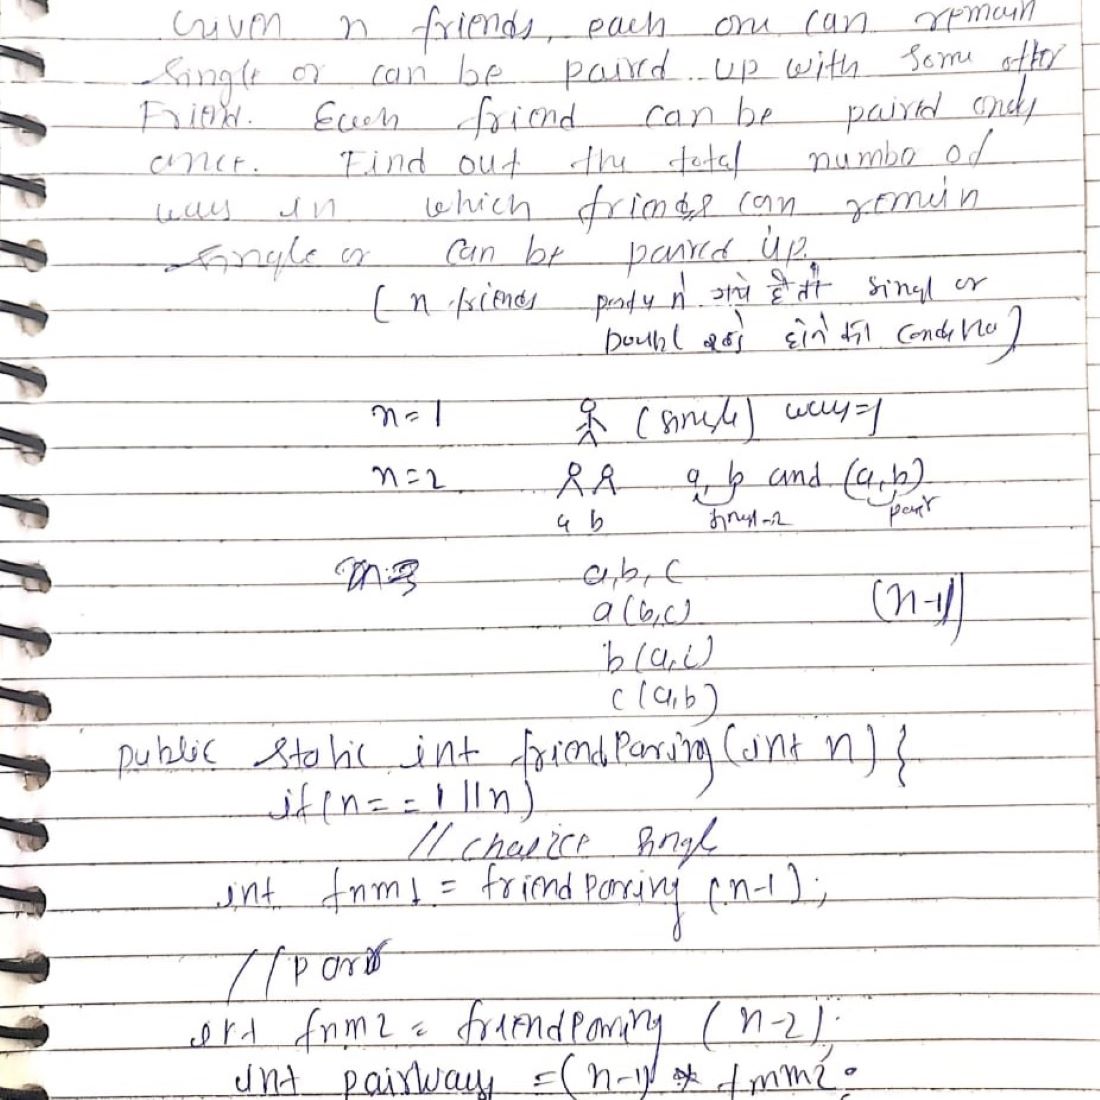 Given n friends, each one can remain
single or can be paired up with some other
Friend. Each friend can be paired only
once. Find out the total number of
ways in which friends can remain
single or can be paired up.
( n friends party में गये है तो singl or
Doubl होने की condition)
n=1 (single) way=1
n=2 a, b and (a,b)
a b singl-2 pair
n=3 a,b,c
a(b,c) (n-1)
b(a,c)
c(a,b)
public static int friendParing(int n) {
if(n==1||n)
// choice singl
int fnm1 = friendParing (n-1);
//pair
int fnm2 = friendParing (n-2);
int pairway =(n-1) * fnm2;